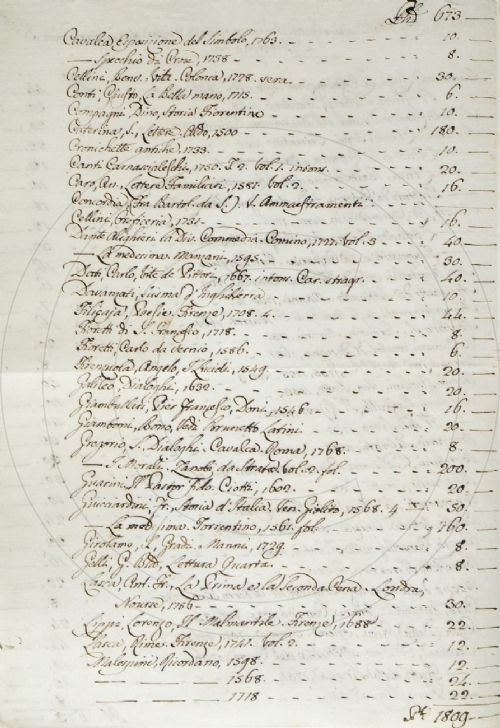 673 —
Cavalca Esposizione del Simbolo, 1763. 10.
— Specchio di Croce 1738 8.
Cellini, Benv. Vita. Colonia, 1728. 30.
Conti, Giusto, La Bella mano, 1715. 6.
Compagni, Dino, Storia Fiorentina 10.
Caterina, S., Lettere, Aldo, 1500 180.
Cronichette antiche, 1733. 10.
Canti Carnascialeschi, 1750. T. 2. Vol. 1. intons. 20.
Caro, An. Lettere familiari, 1581. Vol. 2. 16.
Concordia (Fra Bartol. da S.) V. Ammaestramenti
Cellini, Oreficeria, 1731. 16.
Dante Alighieri la Div. Commedia. Comino, 1727. Vol. 3 40.
— La medesima. Manzani, 1595. 30.
Dati, Carlo, Vite de Pittori, 1667. intons. Car. stragr. 40.
Davanzati, Scisma d'Inghilterra 10.
Filicaja, Poesie. Firenze, 1708. 4. 44.
Fioretti di S. Francesco, 1718. 8.
Fioretti, Carlo da Vernio, 1586. 6.
Firenzuola, Angelo, I Lucidi, 1549. 20.
Galileo, Dialoghi, 1632. 20.
Giambullari, Pier Francesco, Doni, 1546 16.
Giamboni, Bono, Brunetto Latini 20.
Gregorio, S. Dialoghi. Cavalca. Roma, 1768. 8.
— I Morali. Zanobi da Strata. Vol. 2. fol. 200.
Guarini Il Pastor Fido. Ciotti, 1602. 20.
Guicciardini, Fr. Storia d'Italia. Ven. Giolito, 1568. 4 50.
— La medesima. Torrentino, 1561. fol. 160.
Girolamo, S. Gradi. Manni, 1729. 8.
Gelli, G. Bat. Lettura Quarta. 8.
Lasca, Ant. Fr., La Prima e la Seconda Cena. Londra,
Nourse, 1756. 30.
Lippi, Lorenzo, Il Malmantile. Firenze, 1688 22.
Lasca, Rime. Firenze, 1741. Vol. 2. 12.
Malespini Ricordano, 1598. 12.
— 1568. 24.
— 1718 22.
1809 —